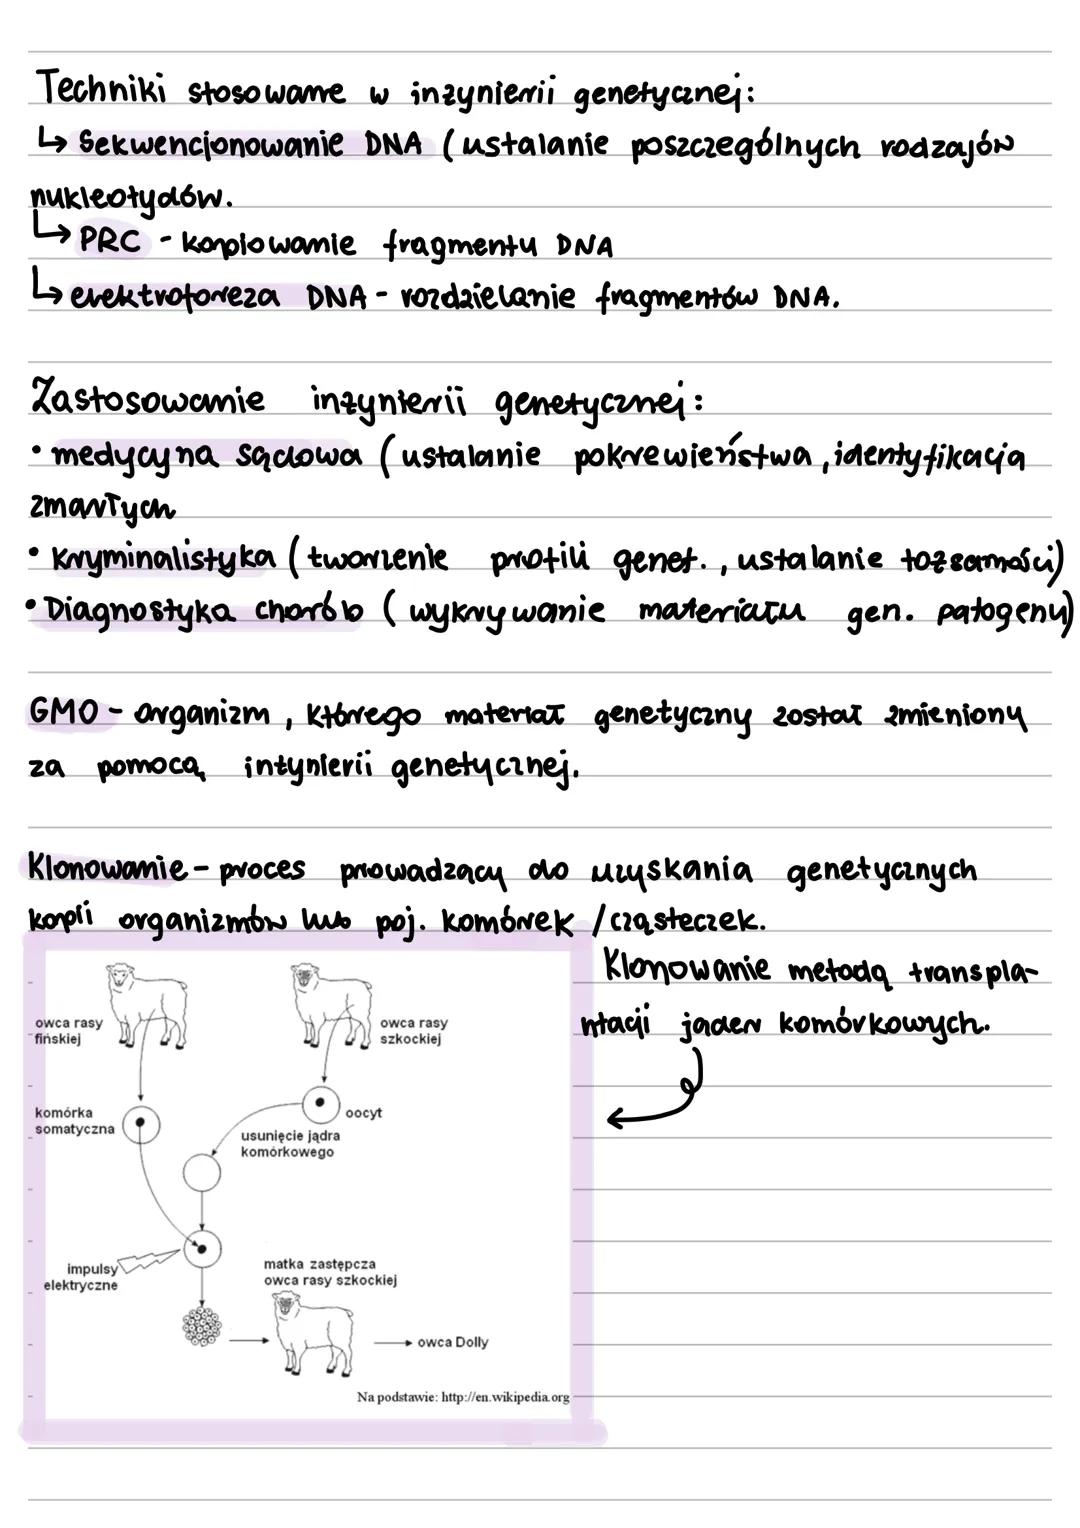 Techniki stosowane w inżynierii genetycznej:
↳ Sekwencjonowanie DNA (ustalanie poszczególnych rodzajów
nukleotydów.
↳ PRC - kopiowanie fragmentu DNA
↳ elektroforeza DNA - rozdzielanie fragmentów DNA.
Zastosowanie inżynierii genetycznej:
• medycyna sądowa (ustalanie pokrewieństwa, identyfikacja
zmarłych
• Kryminalistyka (tworzenie profili genet., ustalanie tożsamości)
• Diagnostyka chorób (wykrywanie materiału gen. patogenu)
GMO - organizm, którego materiał genetyczny został zmieniony
za pomocą inżynierii genetycznej.
Klonowanie - proces prowadzący do uzyskania genetycznych
kopii organizmów lub poj. komórek / cząsteczek.
Klonowanie metodą transpla-
ntacji jąder komórkowych.
owca rasy
fińskiej
owca rasy
szkockiej
komórka
somatyczna
oocyt
usunięcie jądra
komórkowego
impulsy
elektryczne
matka zastępcza
owca rasy szkockiej
owca Dolly
Na podstawie: http://en.wikipedia.org